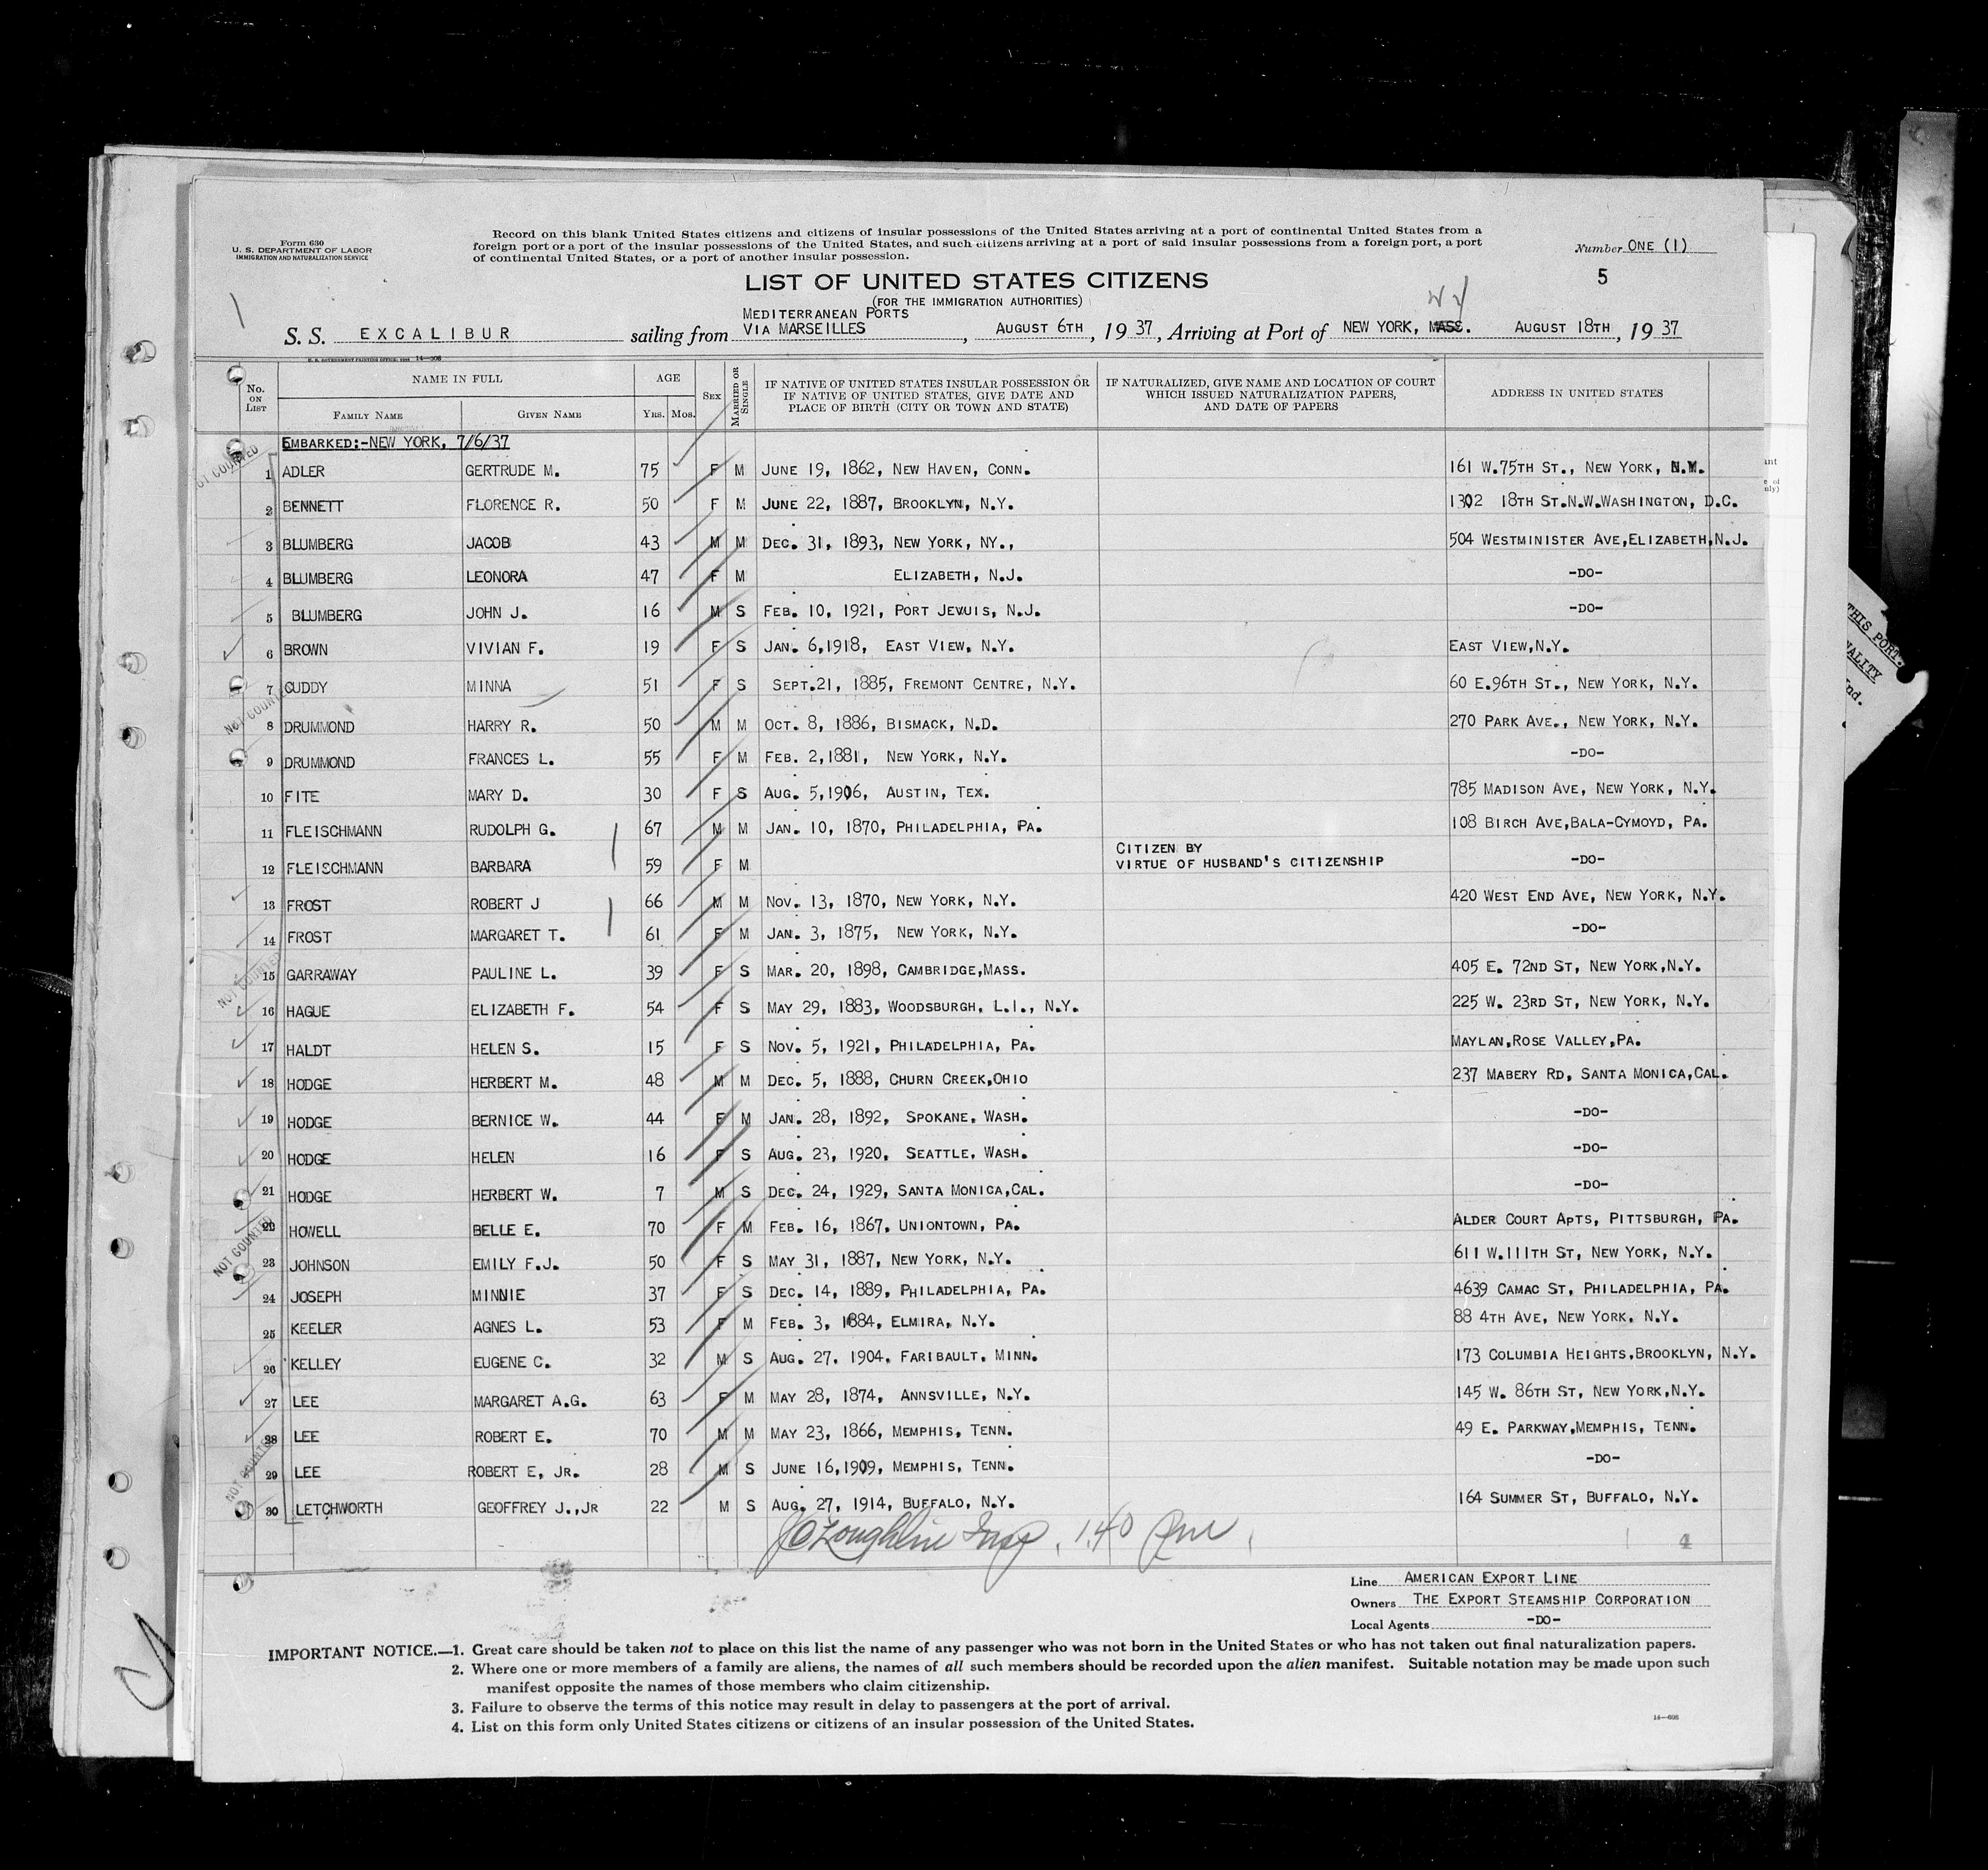 Form 630
U. S. DEPARTMENT OF LABOR
IMMIGRATION AND NATURALIZATION SERVICE
Record on this blank United States citizens and citizens of insular possessions of the United States arriving at a port of continental United States from a
foreign port or a port of the insular possessions of the United States, and such citizens arriving at a port of said insular possessions from a foreign port, a port
of continental United States, or a port of another insular possession.
Number ONE (1)
5
LIST OF UNITED STATES CITIZENS
(FOR THE IMMIGRATION AUTHORITIES)
S. S. EXCALIBUR sailing from MEDITERRANEAN PORTS VIA MARSEILLES, AUGUST 6TH, 1937, Arriving at Port of NEW YORK, MASS. AUGUST 18TH, 1937
No. ON LIST NAME IN FULL FAMILY NAME GIVEN NAME AGE YRS. MOS. SEX MARRIED OR SINGLE IF NATIVE OF UNITED STATES INSULAR POSSESSION OR IF NATIVE OF UNITED STATES, GIVE DATE AND PLACE OF BIRTH (CITY OR TOWN AND STATE) IF NATURALIZED, GIVE NAME AND LOCATION OF COURT WHICH ISSUED NATURALIZATION PAPERS, AND DATE OF PAPERS ADDRESS IN UNITED STATES
EMBARKED:-NEW YORK, 7/6/37
1 ADLER GERTRUDE M. 75 F M JUNE 19, 1862, NEW HAVEN, CONN. 161 W.75TH ST., NEW YORK, N.Y.
2 BENNETT FLORENCE R. 50 F M JUNE 22, 1887, BROOKLYN, N.Y. 1302 18TH ST.N.W.WASHINGTON, D.C.
3 BLUMBERG JACOB 43 M M DEC. 31, 1893, NEW YORK, NY., 504 WESTMINISTER AVE,ELIZABETH,N.J.
4 BLUMBERG LEONORA 47 F M ELIZABETH, N.J. -DO-
5 BLUMBERG JOHN J. 16 M S FEB. 10, 1921, PORT JEVUIS, N.J. -DO-
6 BROWN VIVIAN F. 19 F S JAN. 6,1918, EAST VIEW, N.Y. EAST VIEW,N.Y.
7 CUDDY MINNA 51 F S SEPT.21, 1885, FREMONT CENTRE, N.Y. 60 E.96TH ST., NEW YORK, N.Y.
8 DRUMMOND HARRY R. 50 M M OCT. 8, 1886, BISMACK, N.D. 270 PARK AVE., NEW YORK, N.Y.
9 DRUMMOND FRANCES L. 55 F M FEB. 2,1881, NEW YORK, N.Y. -DO-
10 FITE MARY D. 30 F S AUG. 5,1906, AUSTIN, TEX. 785 MADISON AVE, NEW YORK, N.Y.
11 FLEISCHMANN RUDOLPH G. 67 M M JAN. 10, 1870, PHILADELPHIA, PA. 108 BIRCH AVE,BALA-CYMOYD, PA.
12 FLEISCHMANN BARBARA 59 F M CITIZEN BY VIRTUE OF HUSBAND'S CITIZENSHIP -DO-
13 FROST ROBERT J 66 M M NOV. 13, 1870, NEW YORK, N.Y. 420 WEST END AVE, NEW YORK, N.Y.
14 FROST MARGARET T. 61 F M JAN. 3, 1875, NEW YORK, N.Y. -DO-
15 GARRAWAY PAULINE L. 39 F S MAR. 20, 1898, CAMBRIDGE,MASS. 405 E. 72ND ST, NEW YORK,N.Y.
16 HAGUE ELIZABETH F. 54 F S MAY 29, 1883, WOODSBURGH, L.I., N.Y. 225 W. 23RD ST, NEW YORK, N.Y.
17 HALDT HELEN S. 15 F S NOV. 5, 1921, PHILADELPHIA, PA. MAYLAN,ROSE VALLEY,PA.
18 HODGE HERBERT M. 48 M M DEC. 5, 1888, CHURN CREEK,OHIO 237 MABERY RD, SANTA MONICA,CAL.
19 HODGE BERNICE W. 44 F M JAN. 28, 1892, SPOKANE, WASH. -DO-
20 HODGE HELEN 16 F S AUG. 23, 1920, SEATTLE, WASH. -DO-
21 HODGE HERBERT W. 7 M S DEC. 24, 1929, SANTA MONICA,CAL. -DO-
22 HOWELL BELLE E. 70 F M FEB. 16, 1867, UNIONTOWN, PA. ALDER COURT APTS, PITTSBURGH, PA.
23 JOHNSON EMILY F.J. 50 F S MAY 31, 1887, NEW YORK, N.Y. 611 W.111TH ST, NEW YORK, N.Y.
24 JOSEPH MINNIE 37 F S DEC. 14, 1889, PHILADELPHIA, PA. 4639 CAMAC ST, PHILADELPHIA, PA.
25 KEELER AGNES L. 53 F M FEB. 3, 1884, ELMIRA, N.Y. 88 4TH AVE, NEW YORK, N.Y.
26 KELLEY EUGENE C. 32 M S AUG. 27, 1904, FARIBAULT, MINN. 173 COLUMBIA HEIGHTS,BROOKLYN, N.Y.
27 LEE MARGARET A.G. 63 F M MAY 28, 1874, ANNSVILLE, N.Y. 145 W. 86TH ST, NEW YORK,N.Y.
28 LEE ROBERT E. 70 M M MAY 23, 1866, MEMPHIS, TENN. 49 E. PARKWAY,MEMPHIS, TENN.
29 LEE ROBERT E, JR. 28 M S JUNE 16,1909, MEMPHIS, TENN. -DO-
30 LETCHWORTH GEOFFREY J.,JR 22 M S AUG. 27, 1914, BUFFALO, N.Y. 164 SUMMER ST, BUFFALO, N.Y.
NOT COUNTED
NOT COUNTED
NOT COUNTED
NOT COUNTED
NOT COUNTED
Line AMERICAN EXPORT LINE
Owners THE EXPORT STEAMSHIP CORPORATION
Local Agents -DO-
IMPORTANT NOTICE.—1. Great care should be taken not to place on this list the name of any passenger who was not born in the United States or who has not taken out final naturalization papers.
2. Where one or more members of a family are aliens, the names of all such members should be recorded upon the alien manifest. Suitable notation may be made upon such
manifest opposite the names of those members who claim citizenship.
3. Failure to observe the terms of this notice may result in delay to passengers at the port of arrival.
4. List on this form only United States citizens or citizens of an insular possession of the United States.
THIS PORT.